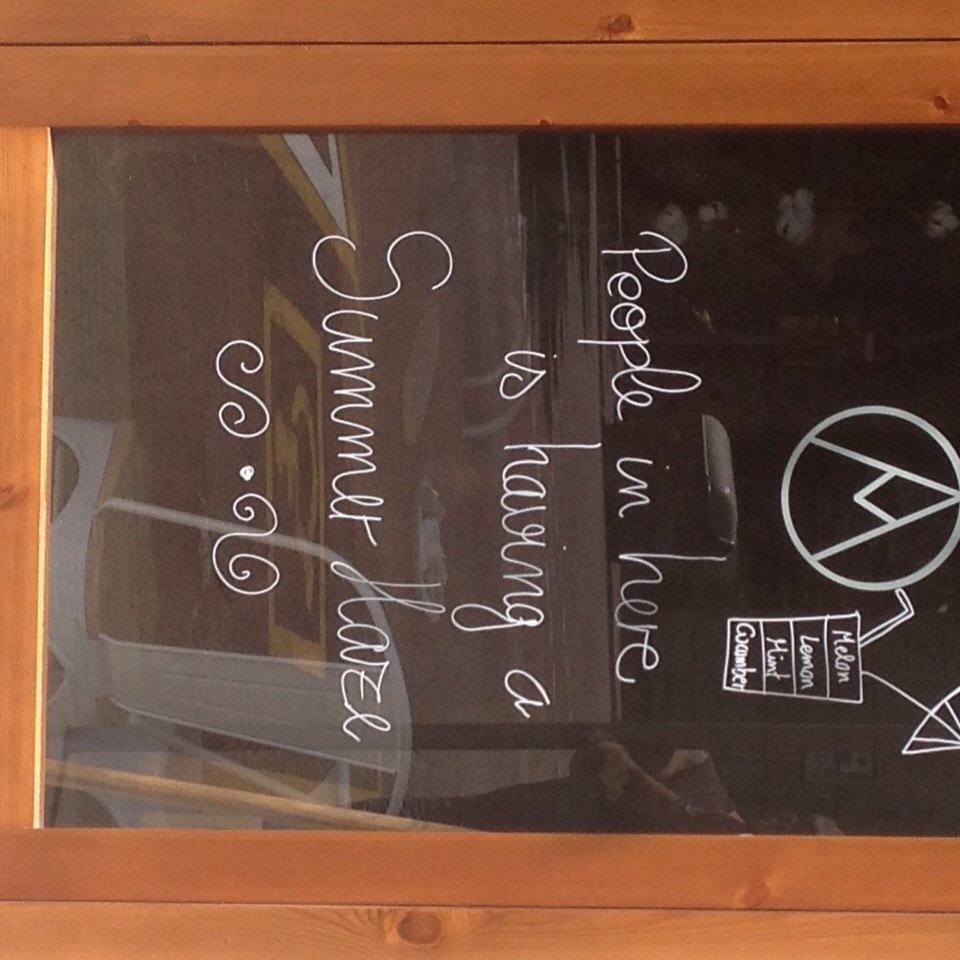 Melon
Lemon
Mint
Cucumber
People in here
is having a
Summer Haze